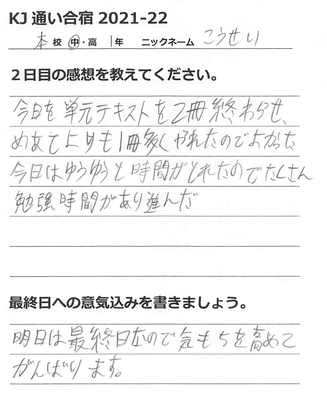 KJ 通い合宿 2021-22
本 校 中・高 1年 ニックネーム こうせい
２日目の感想を教えてください。
今日を単元テキストを2冊終わらせ、
めあてよりも1冊多くやれたのでよかった
今日はゆうゆうと時間がとれたのでたくさん
勉強時間があり進んだ
最終日への意気込みを書きましょう。
明日は最終日なので気もちを高めて
がんばります。